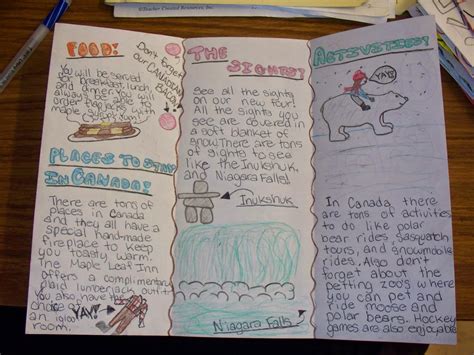 ©Teacher Created Resources, Inc.
FOOD!
You will be served
breakfast, lunch,
and dinner. You will
always be able to
order flapjacks with
maple syrup.
Don't forget
our CANADIAN
BACON!
PLACES TO STAY
IN CANADA!
There are tons of
places in Canada
and they all have a
special hand-made
fireplace to keep
you toasty warm.
The Maple Leaf Inn
offers a complimentary
plaid lumberjack outfit.
You also have the
choice of
an igloo
room.
YAY!
THE
SIGHTS!
See all the sights
on our new tour!
All the sights you
see are covered in
a soft blanket of
snow. There are tons
of sights to see
like the Inukshuk,
and Niagara Falls!
Inukshuk
Niagara Falls
ACTIVITIES!
YAY!
In Canada, there
are tons of activities
to do like polar
bear rides, Sasquatch
tours, and snowmobile
rides. Also don't
forget about the
petting zoo's where
you can pet and
ride moose and
polar bears. Hockey
games are also enjoyable